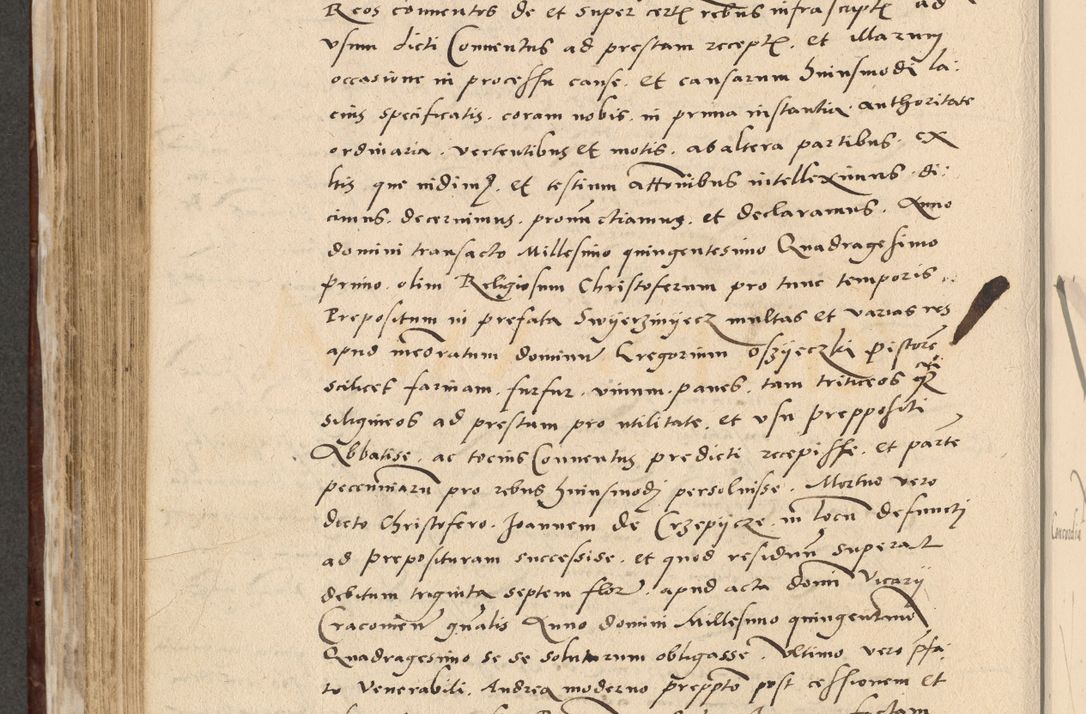 Reos conuentos de et super certis rebus infrascriptis ad
vsum dicti Conuentus ad prestam receptis. et illarum
occasione in processu cause. et causarum huiusmodi la:
cius specificatis. coram nobis. in prima instantia. authoritate
ordinaria. vertentibus et motis. ab altera partibus. ex
his que vidimus. et testium attestationibus intelleximus. di:
cimus. decernimus. pronunctiamus. et declaramus. Anno
domini transacto Millesimo quingentesimo Quadragesimo
primo. olim Religiosum Christoferum pro tunc temporis.
Prepositum in prefata Swyerzinyecz multas et varias res
apud memoratum dominum Gregorium Oszyeczki pistorem
scilicet farinam. furfur. vinum. panes. tam triticeos
siligineos ad prestum pro utilitate. et vsu preppositi
Abbatise. ac tocius Conuentus predicti recepisse. et partem
pecuniarum pro rebus huiusmodi persoluisse. Mortuo vero
dicto Christofero. Joannem de Crzepycze. in locum defuncti
ad preposituram successisse. et quod residuum superat
debitum triginta septem flor. apud acta domini Vicarij
Cracouien generalis Anno domini Millesimo quingentesimo
Quadragesimo se se soluturum obligasse. Vltimo vero prefa:
to Venerabili. Andrea moderno preppto post cessionem et